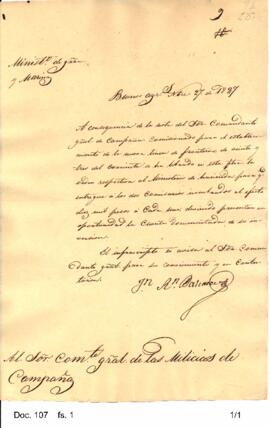 9
Minist.º de gra
y Marina
Buenos ay.s Nbre 27 de 1827
A consequencia de la nota del Sor Comandante
gral de Campaña comisionado para el estableci-
miento de la nueva linea de frontera de veinte y
tres del corriente se ha librado en esta fha la
orden respectiva al Ministerio de hacienda para q.e
entregue a los dos comisarios
diez mil pesos a Cada uno, debiendo presentar en
oportunidad la Cuenta documentada de su in-
version.
El infrascripto lo avisa al Sor Coman-
dante gral para su conocimiento y en Contes-
tacion.
Al Sor Com.te gral de las Milicias de
Campaña
Doc. 107 fs. 1
1/1